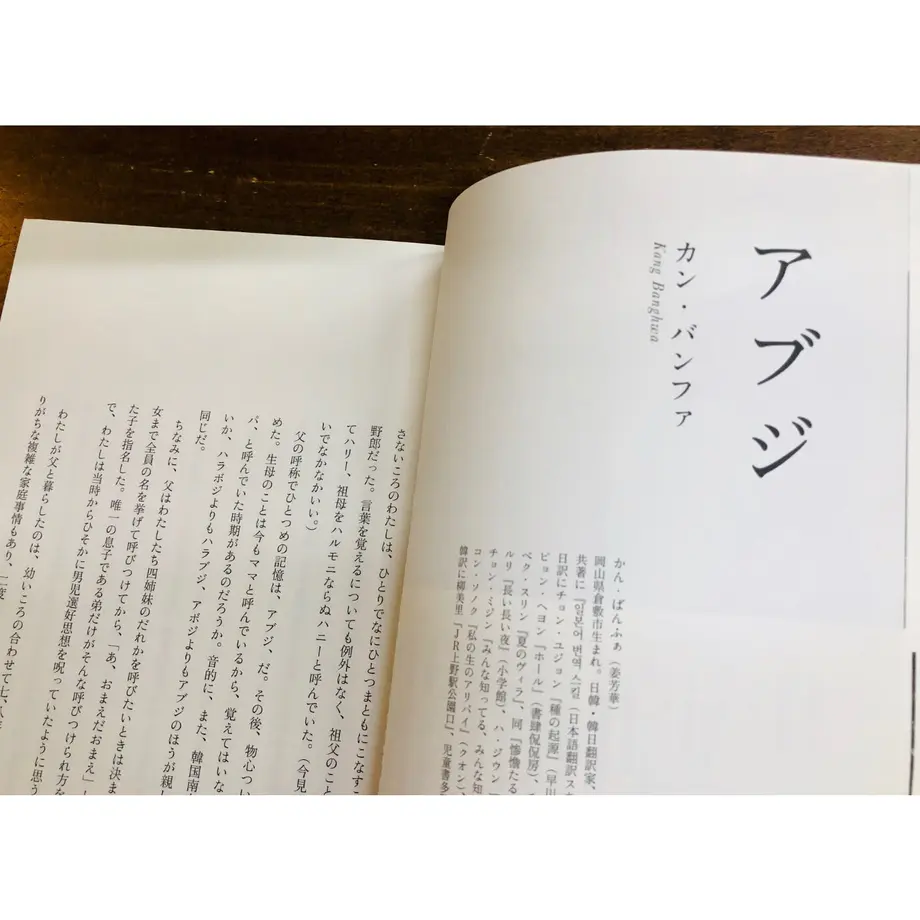 アブジ
カン・バンファ
Kang Banghwa
かん・ばんふぁ(姜芳華)
岡山県倉敷市生まれ。日韓・韓日翻訳家、
共著に『일본어 번역 스킬(日本語翻訳ス
日訳にチョン・ユジョン『種の起源』(早川
ピョン・ヘヨン『ホール』(書肆侃侃房)、
ペク・スリン『夏のヴィラ』、同『惨憺たる
ルリ『長い長い夜』(小学館)、ハ・ジウン
チョン・ミジン『みんな知ってる、みんな知
コン・ソノク『私の生のアリバイ』(クオン)、
韓訳に柳美里『JR上野駅公園口』、児童書多
さないころのわたしは、ひとりでなにひとつまともにこなすこ
野郎だった。言葉を覚えるについても例外はなく、祖父のこと
てハリー、祖母をハルモニならぬハニーと呼んでいた。(今見
いでなかなかいい。)
父の呼称でひとつめの記憶は、アブジ、だ。その後、物心つい
めた。生母のことは今もママと呼んでいるから、覚えてはいな
パ、と呼んでいた時期があるのだろうか。音的に、また、韓国南
いか、ハラボジよりもハラブジ、アボジよりもアブジのほうが親し
同じだ。
ちなみに、父はわたしたち四姉妹のだれかを呼びたいときは決ま
女まで全員の名を挙げて呼びつけてから、「あ、おまえだおまえ」
た子を指名した。唯一の息子である弟だけがそんな呼びつけられ方を
で、わたしは当時からひそかに男児選好思想を呪っていたように思う
わたしが父と暮らしたのは、幼いころの合わせて七、八年
りがちな複雑な家庭事情もあり、二度